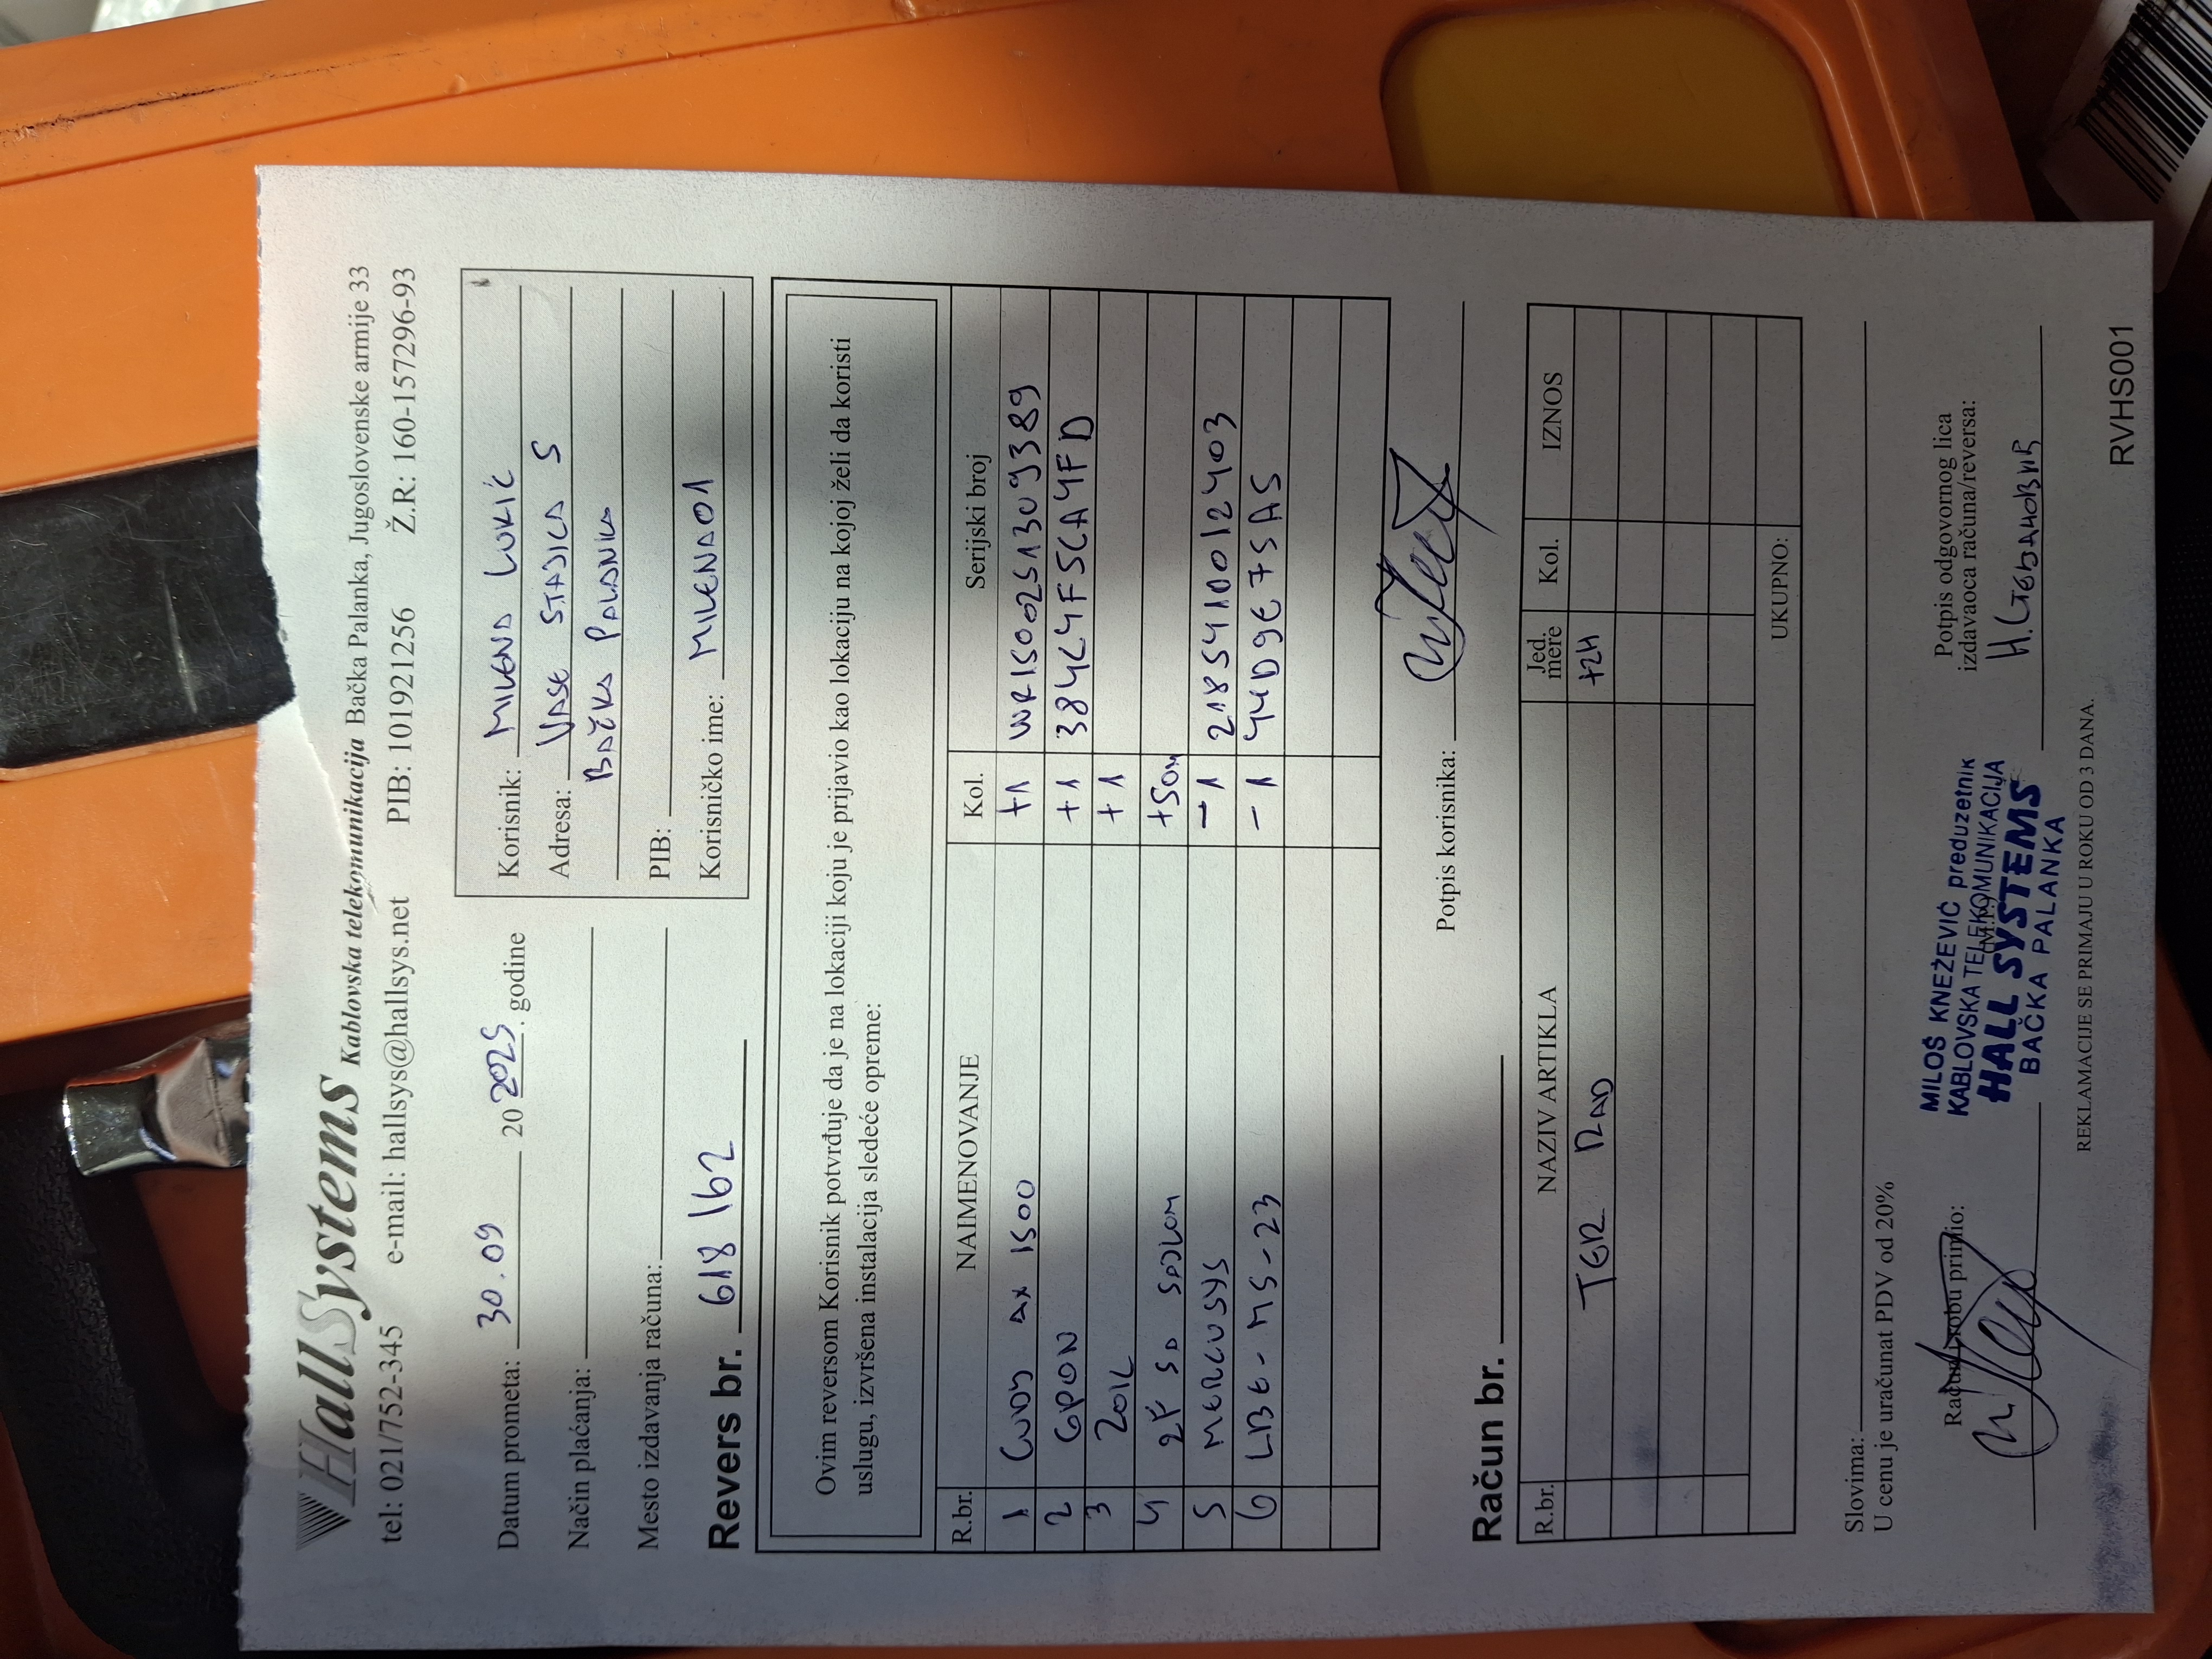 HallSystems Kablovska telekomunikacija Bačka Palanka, Jugoslovenske armije 33
tel: 021/752-345 e-mail: hallsys@hallsys.net PIB: 101921256 Ž.R: 160-157296-93
Datum prometa: 30.09 20 2025. godine
Način plaćanja:
Mesto izdavanja računa:
Revers br. 618 162
Korisnik: MILENA LUKIĆ
Adresa: VASE STAJICA 5
BAČKA PALANKA
PIB:
Korisničko ime: MILENA01
Ovim reversom Korisnik potvrđuje da je na lokaciji koju je prijavio kao lokaciju na kojoj želi da koristi
uslugu, izvršena instalacija sledeće opreme:
R.br. NAIMENOVANJE Kol. Serijski broj
1 CUDY AX 1500 +1 WR15002513093389
2 GPON +1 384C4F5CA4FD
3 ZOIL +1
4 2F SA SAJLOM +50m
5 MERCUSYS -1 2185410012403
6 LBE-M5-23 -1 44D9E75A5
Potpis korisnika:
Račun br.
R.br. NAZIV ARTIKLA Jed. mere Kol. IZNOS
TER RAD +2H
UKUPNO:
Slovima:
U cenu je uračunat PDV od 20%
Račun/robu primio:
MILOŠ KNEŽEVIĆ preduzetnik
KABLOVSKA TELEKOMUNIKACIJA
HALL SYSTEMS
BAČKA PALANKA
Potpis odgovornog lica
izdavaoca računa/reversa:
Н.Стевановић
REKLAMACIJE SE PRIMAJU U ROKU OD 3 DANA.
RVHS001